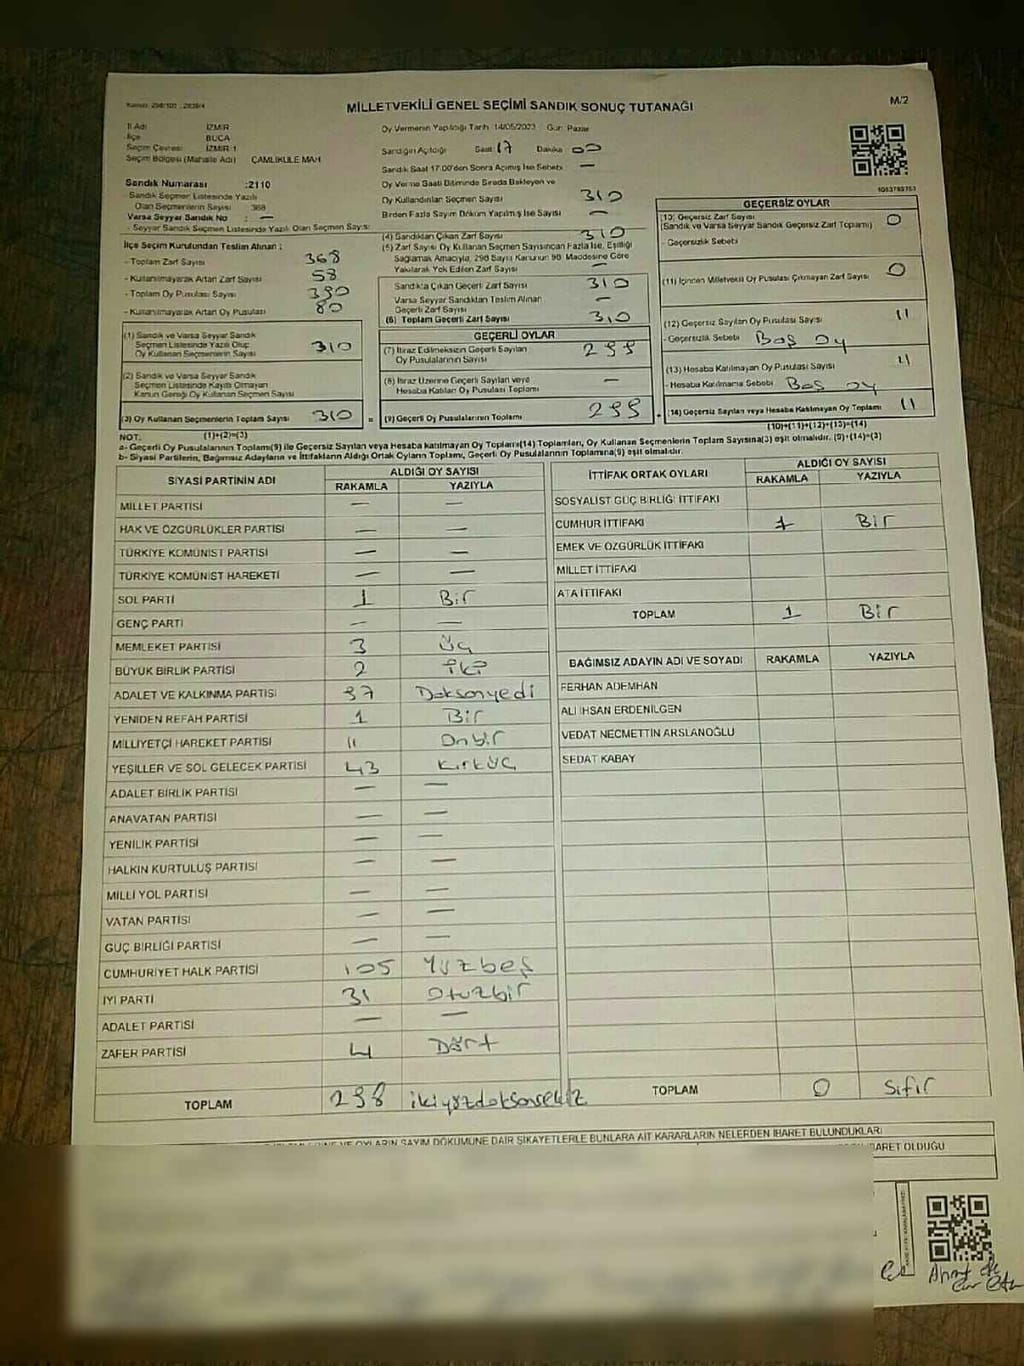 MİLLETVEKİLİ GENEL SEÇİMİ SANDIK SONUÇ TUTANAĞI
M/2
İl Adı İZMİR
İlçe BUCA
Seçim Çevresi İZMİR 1
Seçim Bölgesi (Mahalle Adı) ÇAMLIKULE MAH
Sandık Numarası :2110
Sandık Seçmen Listesinde Yazılı
Olan Seçmenlerin Sayısı 368
Varsa Seyyar Sandık No : —
- Seyyar Sandık Seçmen Listesinde Yazılı Olan Seçmen Sayısı
İlçe Seçim Kurulundan Teslim Alınan :
- Toplam Zarf Sayısı 368
- Kullanılmayarak Artan Zarf Sayısı 58
- Toplam Oy Pusulası Sayısı 390
- Kullanılmayarak Artan Oy Pusulası 80
(1) Sandık ve Varsa Seyyar Sandık
Seçmen Listesinde Yazılı Olup
Oy Kullanan Seçmenlerin Sayısı 310
(2) Sandık ve Varsa Seyyar Sandık
Seçmen Listesinde Kayıtlı Olmayan
Kanun Gereği Oy Kullanan Seçmen Sayısı
(3) Oy Kullanan Seçmenlerin Toplam Sayısı 310 =
Oy Vermenin Yapıldığı Tarih 14/05/2023 Gün: Pazar
Sandığın Açıldığı Saat 17 Dakika 00
Sandık Saat 17.00'den Sonra Açılmış İse Sebebi —
Oy Verme Saati Bitiminde Sırada Bekleyen ve
Oy Kullandırılan Seçmen Sayısı 310
Birden Fazla Sayım Döküm Yapılmış İse Sayısı —
(4) Sandıktan Çıkan Zarf Sayısı 310
(5) Zarf Sayısı Oy Kullanan Seçmen Sayısından Fazla İse, Eşitliği
Sağlamak Amacıyla, 298 Sayılı Kanunun 98. Maddesine Göre
Yakılarak Yok Edilen Zarf Sayısı —
Sandıkta Çıkan Geçerli Zarf Sayısı 310
Varsa Seyyar Sandıktan Teslim Alınan
Geçerli Zarf Sayısı —
(6) Toplam Geçerli Zarf Sayısı 310
GEÇERLİ OYLAR
(7) İtiraz Edilmeksizin Geçerli Sayılan
Oy Pusulalarının Sayısı 299
(8) İtiraz Üzerine Geçerli Sayılan veya
Hesaba Katılan Oy Pusulası Toplamı —
(9) Geçerli Oy Pusulalarının Toplamı 299 +
GEÇERSİZ OYLAR
(10) Geçersiz Zarf Sayısı 0
(Sandık ve Varsa Seyyar Sandık Geçersiz Zarf Toplamı)
- Geçersizlik Sebebi
(11) İçinden Milletvekili Oy Pusulası Çıkmayan Zarf Sayısı 0
(12) Geçersiz Sayılan Oy Pusulası Sayısı 11
- Geçersizlik Sebebi Boş Oy
(13) Hesaba Katılmayan Oy Pusulası Sayısı 11
- Hesaba Katılmama Sebebi Boş oy
(14) Geçersiz Sayılan veya Hesaba Katılmayan Oy Toplamı 11
NOT: (1)+(2)=(3) (10)+(11)+(12)+(13)=(14)
a- Geçerli Oy Pusulalarının Toplamı(9) ile Geçersiz Sayılan veya Hesaba katılmayan Oy Toplamı(14) Toplamları, Oy Kullanan Seçmenlerin Toplam Sayısına(3) eşit olmalıdır. (9)+(14)=(3)
b- Siyasi Partilerin, Bağımsız Adayların ve İttifakların Aldığı Ortak Oyların Toplamı, Geçerli Oy Pusulalarının Toplamına(9) eşit olmalıdır.
SİYASİ PARTİNİN ADI ALDIĞI OY SAYISI
RAKAMLA YAZIYLA
MİLLET PARTİSİ — —
HAK VE ÖZGÜRLÜKLER PARTİSİ — —
TÜRKİYE KOMÜNİST PARTİSİ — —
TÜRKİYE KOMÜNİST HAREKETİ — —
SOL PARTİ 1 Bir
GENÇ PARTİ — —
MEMLEKET PARTİSİ 3 Üç
BÜYÜK BİRLİK PARTİSİ 2 İki
ADALET VE KALKINMA PARTİSİ 97 Doksanyedi
YENİDEN REFAH PARTİSİ 1 Bir
MİLLİYETÇİ HAREKET PARTİSİ 11 Onbir
YEŞİLLER VE SOL GELECEK PARTİSİ 43 Kırküç
ADALET BİRLİK PARTİSİ — —
ANAVATAN PARTİSİ — —
YENİLİK PARTİSİ — —
HALKIN KURTULUŞ PARTİSİ — —
MİLLİ YOL PARTİSİ — —
VATAN PARTİSİ — —
GÜÇ BİRLİĞİ PARTİSİ — —
CUMHURİYET HALK PARTİSİ 105 Yüzbeş
İYİ PARTİ 31 Otuzbir
ADALET PARTİSİ — —
ZAFER PARTİSİ 4 Dört
TOPLAM 298 ikiyüzdoksansekiz
İTTİFAK ORTAK OYLARI ALDIĞI OY SAYISI
RAKAMLA YAZIYLA
SOSYALİST GÜÇ BİRLİĞİ İTTİFAKI
CUMHUR İTTİFAKI 1 Bir
EMEK VE ÖZGÜRLÜK İTTİFAKI
MİLLET İTTİFAKI
ATA İTTİFAKI
TOPLAM 1 Bir
BAĞIMSIZ ADAYIN ADI VE SOYADI RAKAMLA YAZIYLA
FERHAN ADEMHAN
ALİ İHSAN ERDENİLGEN
VEDAT NECMETTİN ARSLANOĞLU
SEDAT KABAY
TOPLAM 0 Sıfır
VE OYLARIN SAYIM DÖKÜMÜNE DAİR ŞİKAYETLERLE BUNLARA AİT KARARLARIN NELERDEN İBARET BULUNDUKLARI
İBARET OLDUĞU